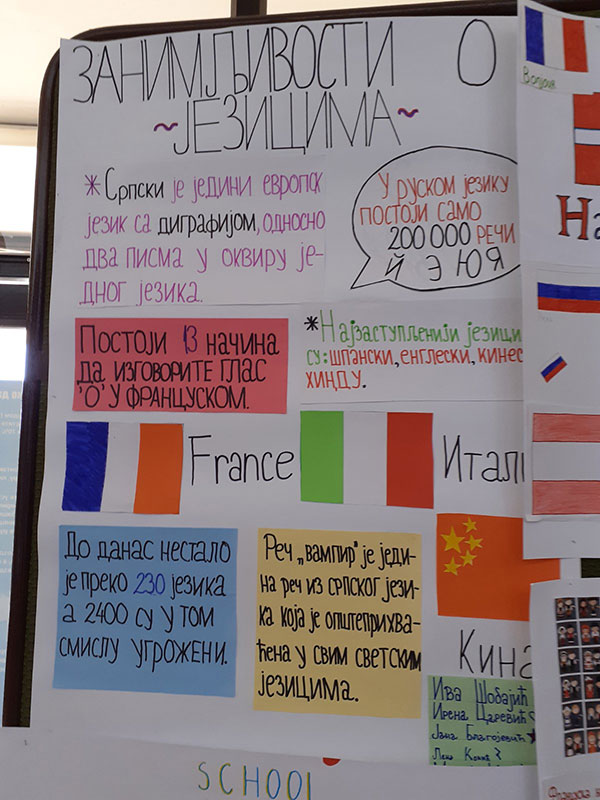 ЗАНИМЉИВОСТИ О
~ЈЕЗИЦИМА~
*Српски је једини европск
језик са диграфијом, односно
два писма у оквиру је-
дног језика.
У руском језику
постоји само
200 000 речи
Й Э Ю Я
Постоји 13 начина
да изговорите глас
'О' у француском.
*Најзаступљенији језици
су: шпански, енглески, кинес
хинду.
France
Итали
До данас нестало
је преко 230 језика
а 2400 су у том
смислу угрожени.
Реч „вампир" је једи-
на реч из српског јези-
ка која је општеприхва-
ћена у свим светским
језицима.
Кина
Ива Шобајић
Ирена Царевић
Јана Благојевић
SCHOOL
На